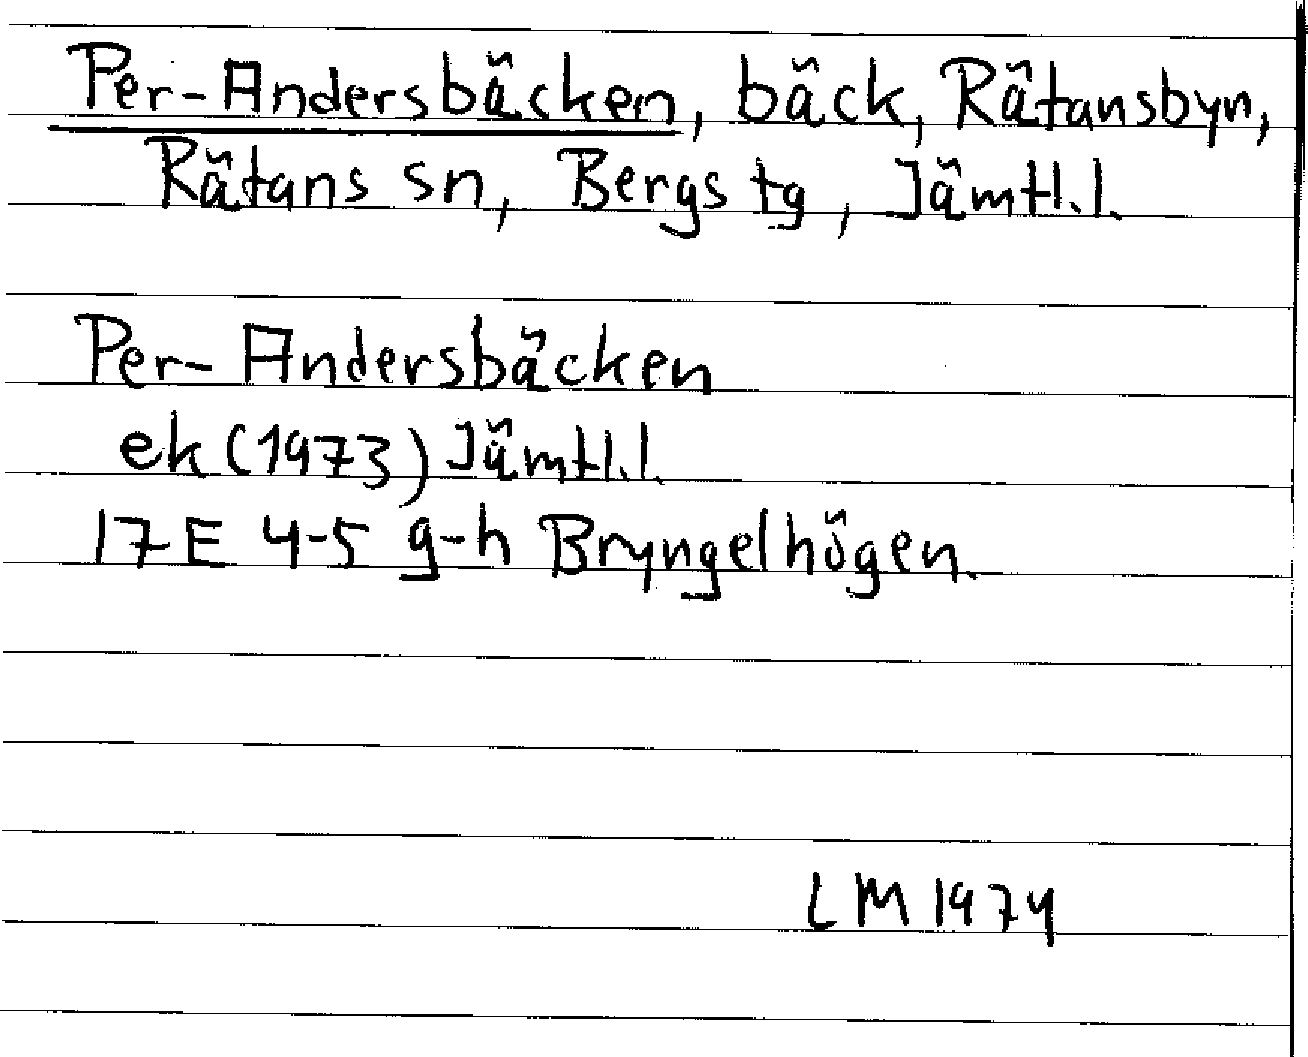 Per-Andersbäcken, bäck, Rätansbyn,
Rätans sn, Bergs tg, Jämtl.l.
Per-Andersbäcken
ek (1973) Jämtl.l.
17E 4-5 g-h Bryngelhögen.
LM 1974